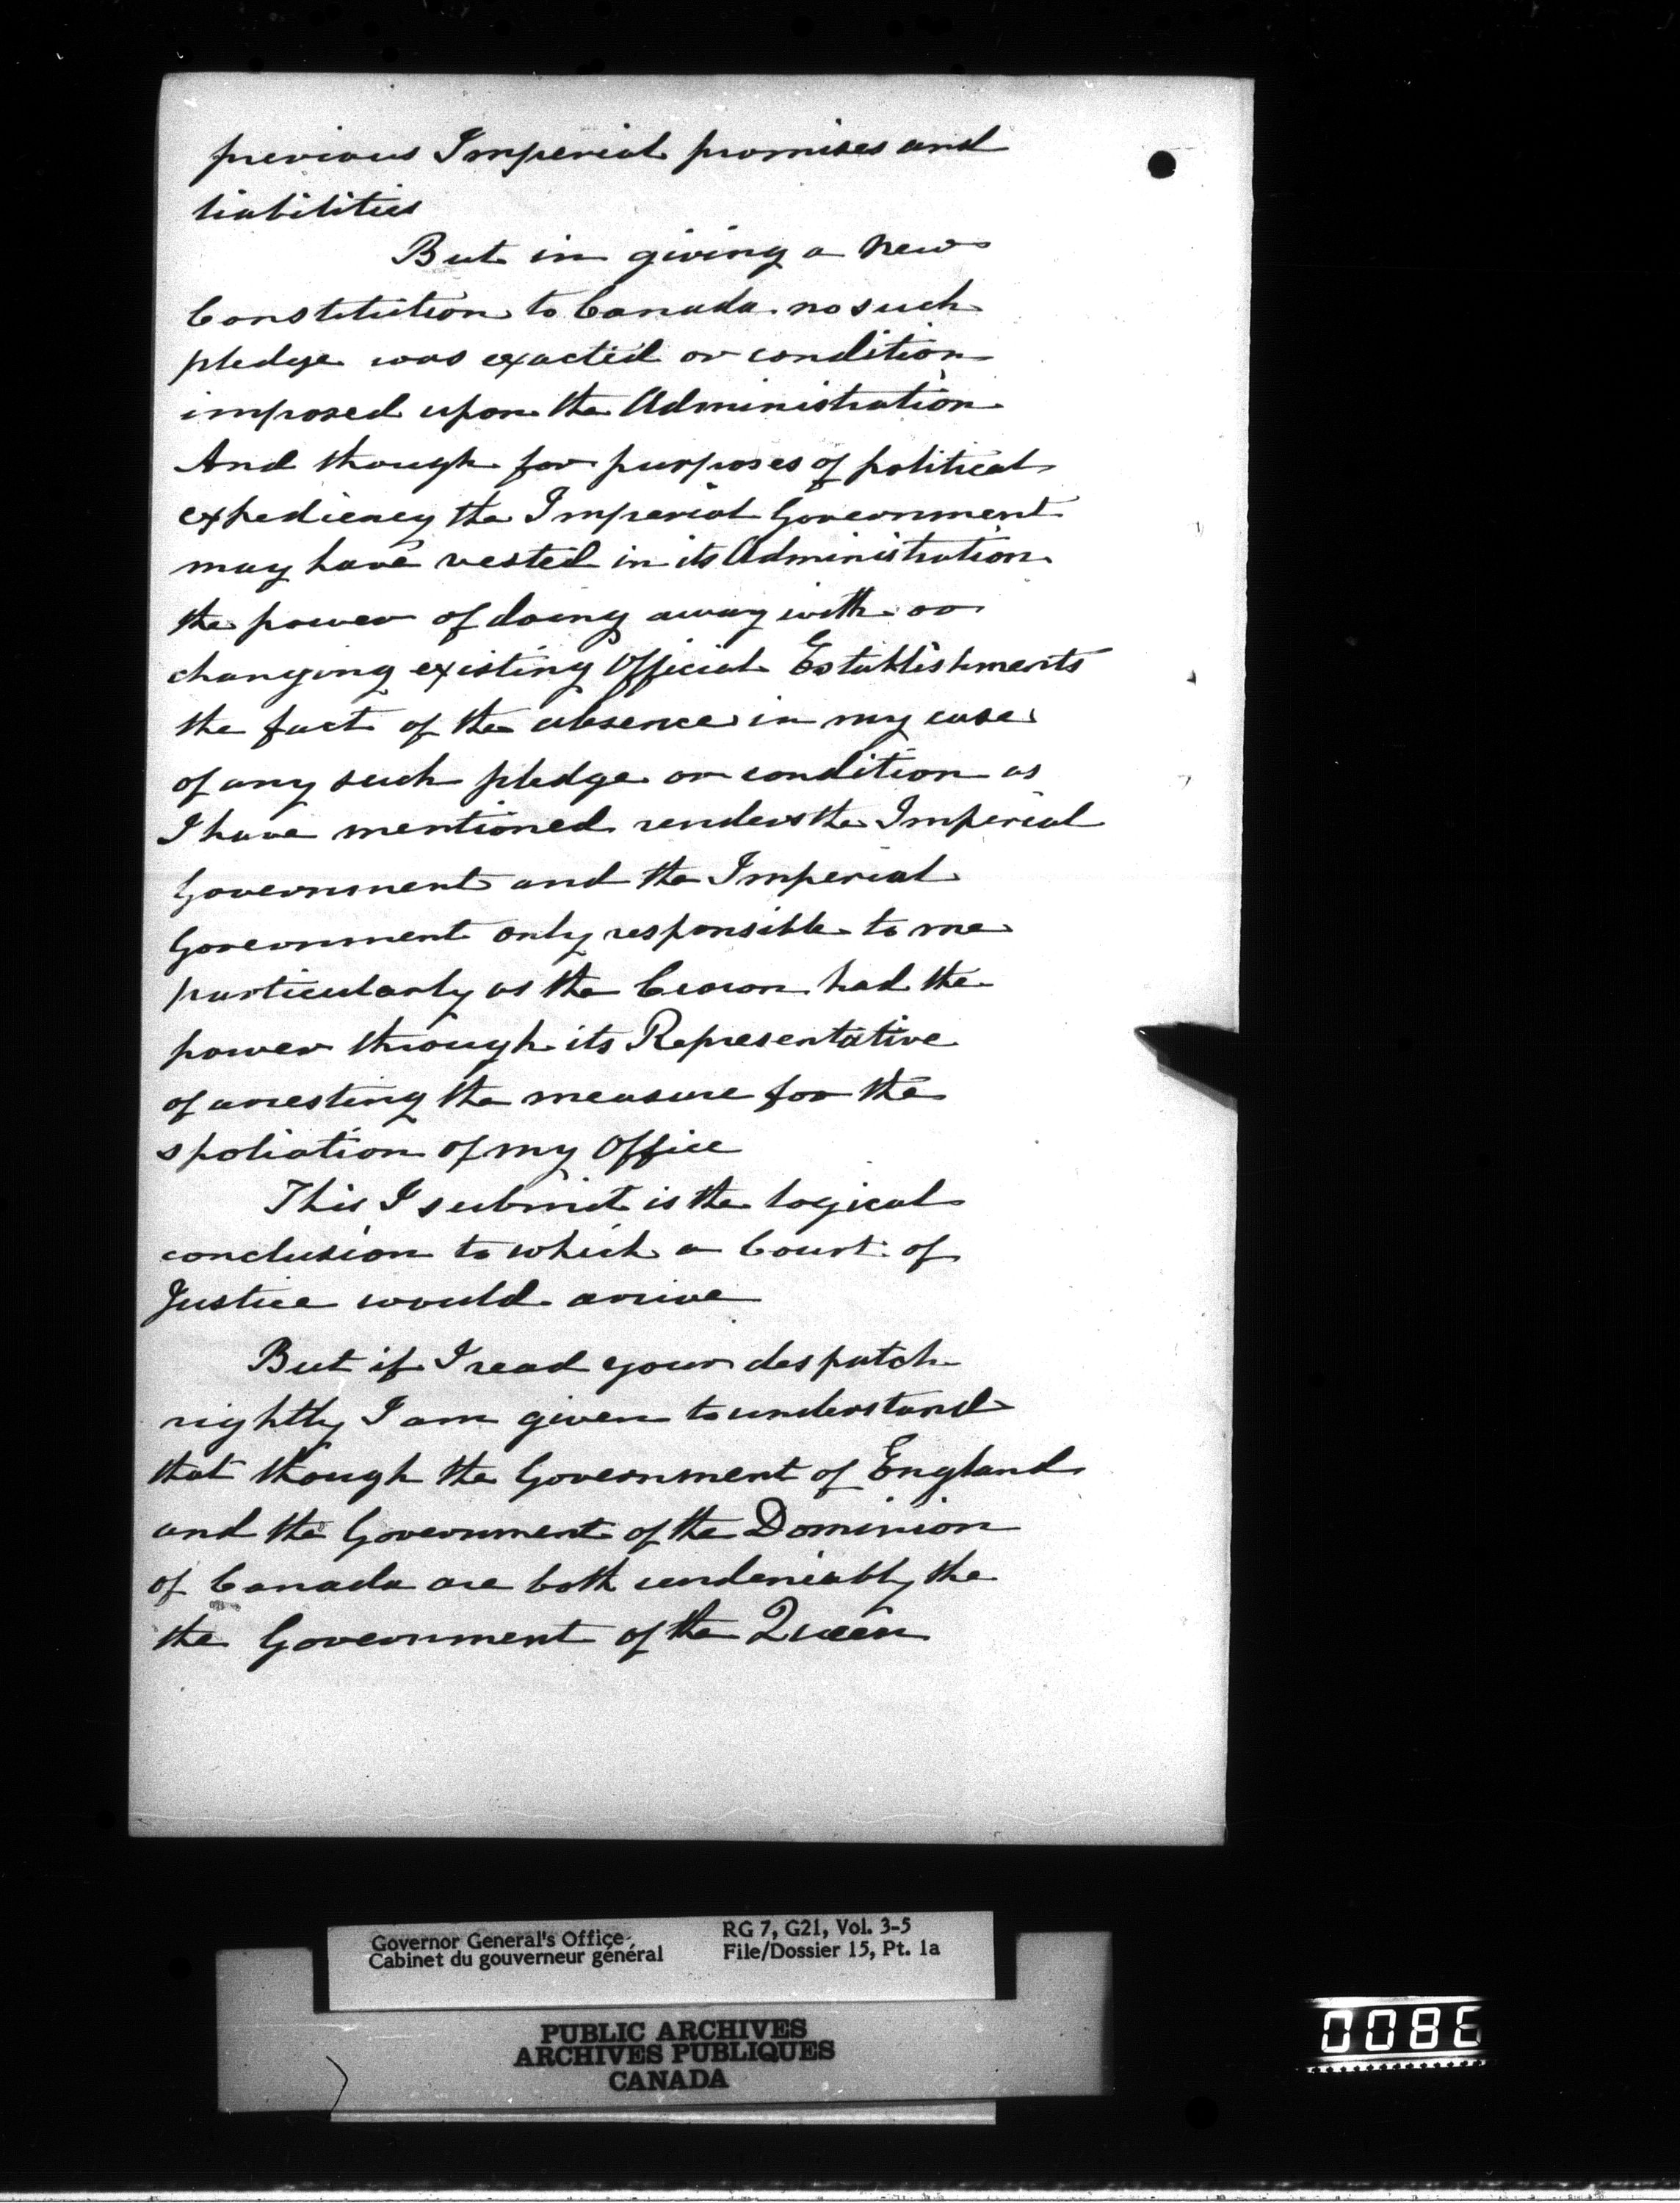 previous Imperial promises and
liabilities
But in giving a new
Constitution to Canada no such
pledge was exacted or condition
imposed upon the Administration
And though for purposes of political
expediency the Imperial Government
may have vested in its Administration
the power of doing away with or
changing existing Official Establishments
the fact of the absence in my case
of any such pledge or condition as
I have mentioned renders the Imperial
Government and the Imperial
Government only responsible to me
particularly as the Crown had the
power through its Representative
of arresting the measure for the
spoliation of my Office
This I submit is the logical
conclusion to which a Court of
Justice would arrive
But if I read your despatch
rightly I am given to understand
that though the Government of England
and the Government of the Dominion
of Canada are both undeniably the
the Government of the Queen
Governor General's Office
Cabinet du gouverneur général
RG 7, G21, Vol. 3-5
File/Dossier 15, Pt. 1a
PUBLIC ARCHIVES
ARCHIVES PUBLIQUES
CANADA